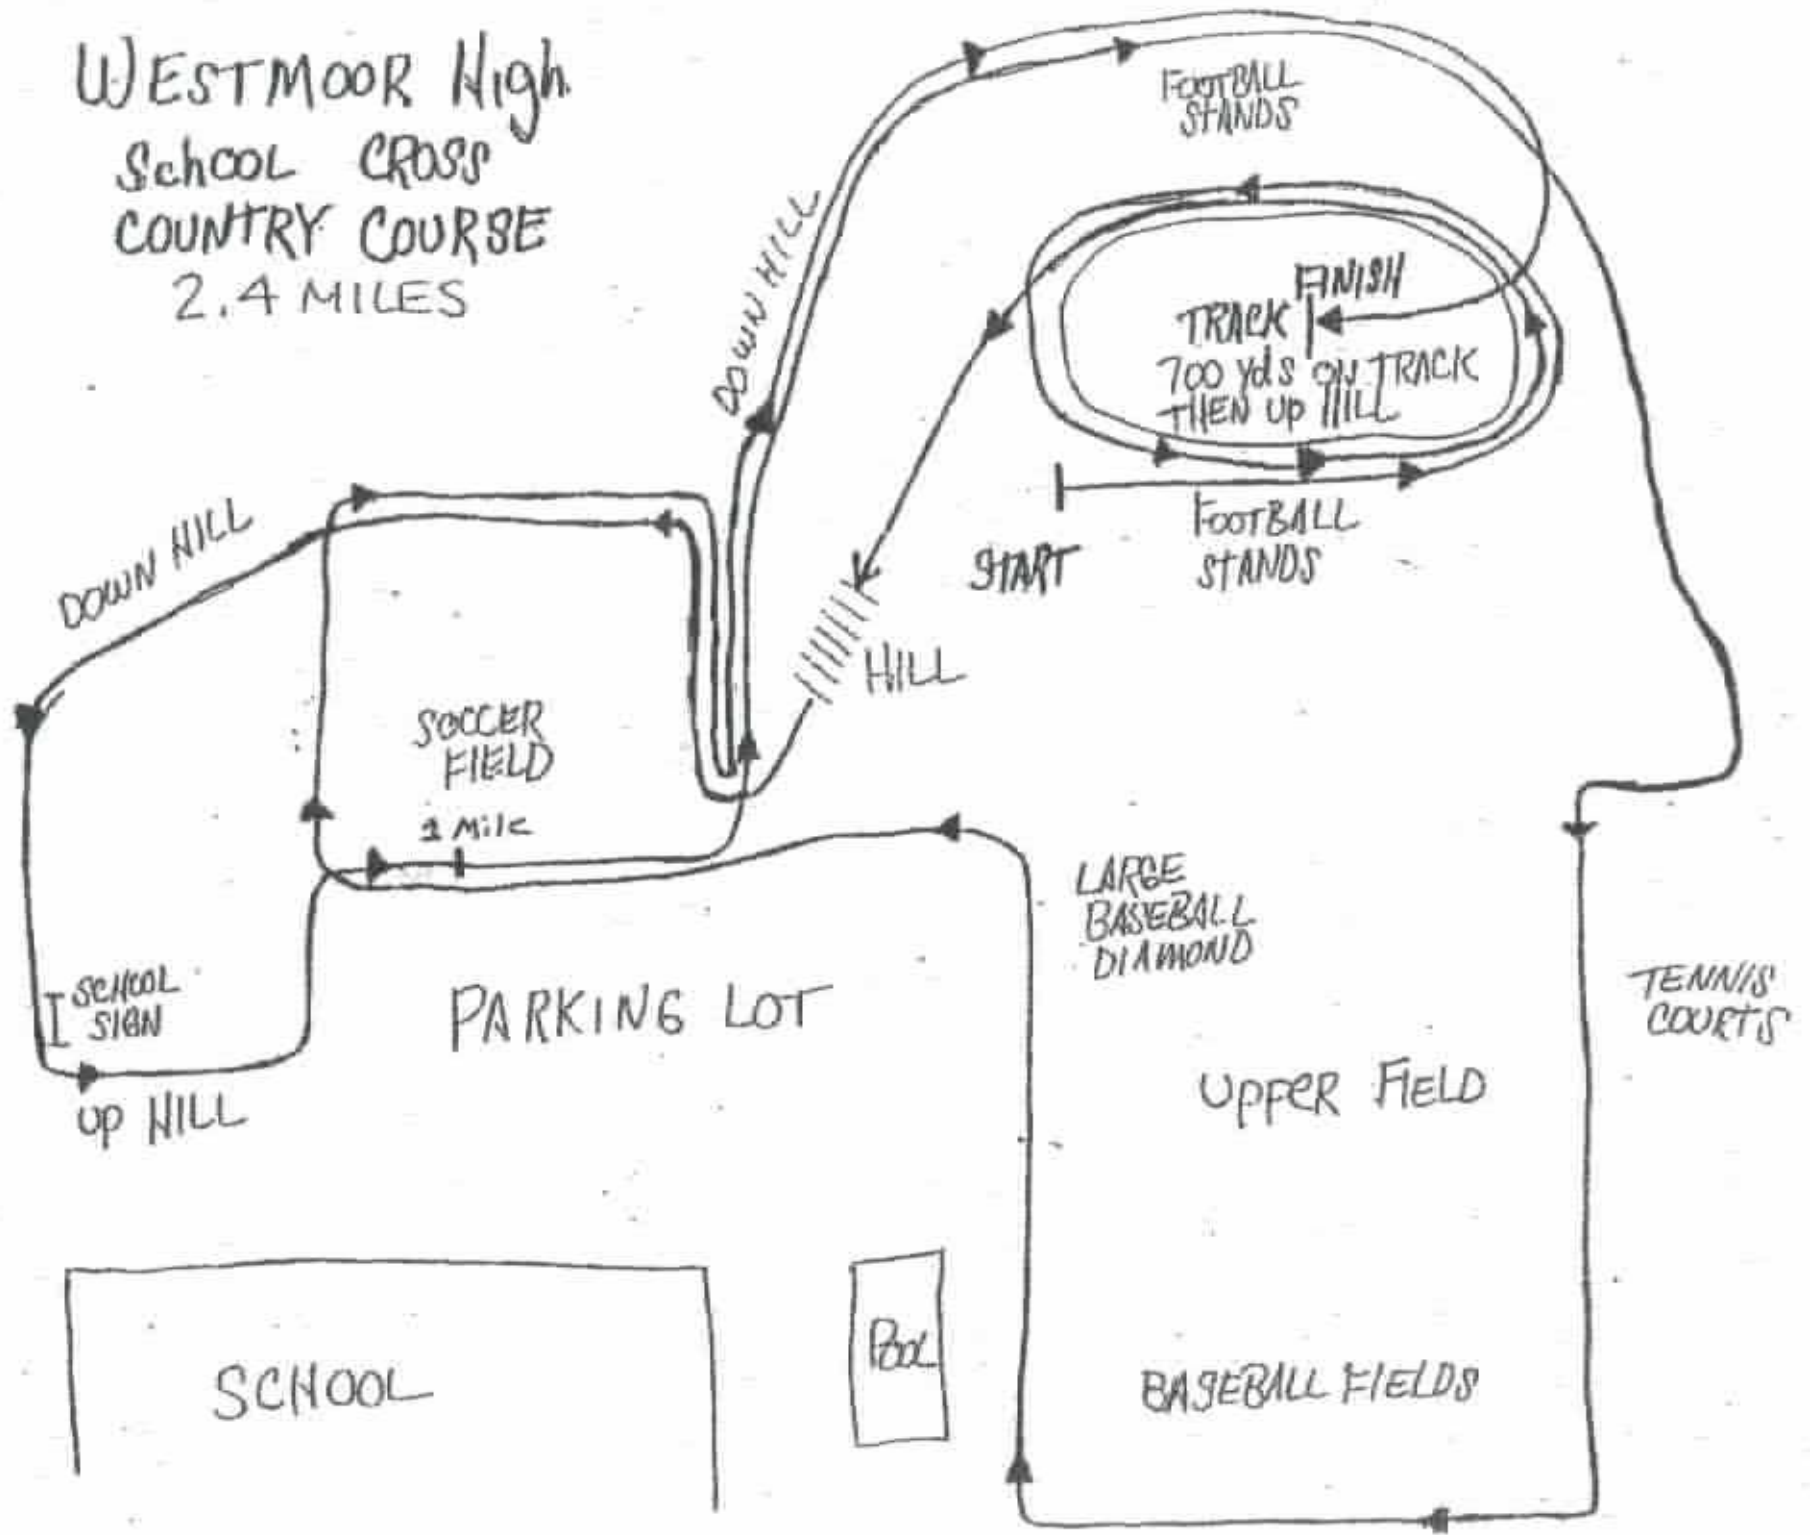 WESTMOOR High
School CROSS
COUNTRY COURSE
2.4 MILES
FOOTBALL
STANDS
DOWN HILL
FINISH
TRACK
700 yds ON TRACK
THEN UP HILL
START
FOOTBALL
STANDS
DOWN HILL
HILL
SOCCER
FIELD
1 Mile
LARGE
BASEBALL
DIAMOND
SCHOOL
SIGN
PARKING LOT
TENNIS
COURTS
UPPER FIELD
UP HILL
POOL
SCHOOL
BASEBALL FIELDS